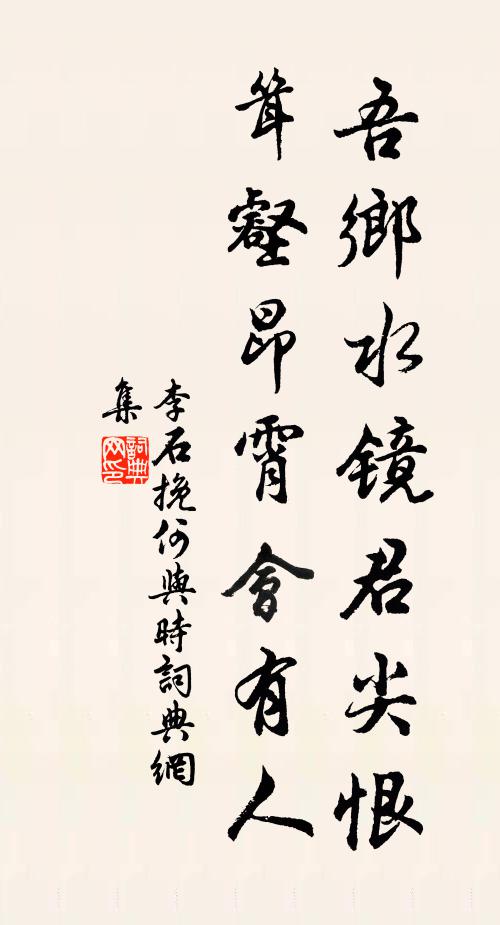 吾鄉水鏡君尖恨
聳壑昂霄會有人
李石挽何與時詞典網
集
詞典網印